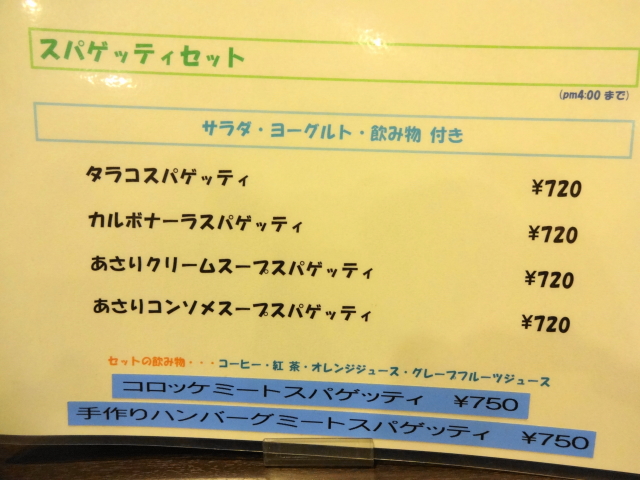 スパゲッティセット
(pm4:00 まで)
サラダ・ヨーグルト・飲み物 付き
タラコスパゲッティ ¥720
カルボナーラスパゲッティ ¥720
あさりクリームスープスパゲッティ ¥720
あさりコンソメスープスパゲッティ ¥720
セットの飲み物・・・コーヒー・紅 茶・オレンジジュース・グレープフルーツジュース
コロッケミートスパゲッティ ¥750
手作りハンバーグミートスパゲッティ ¥750